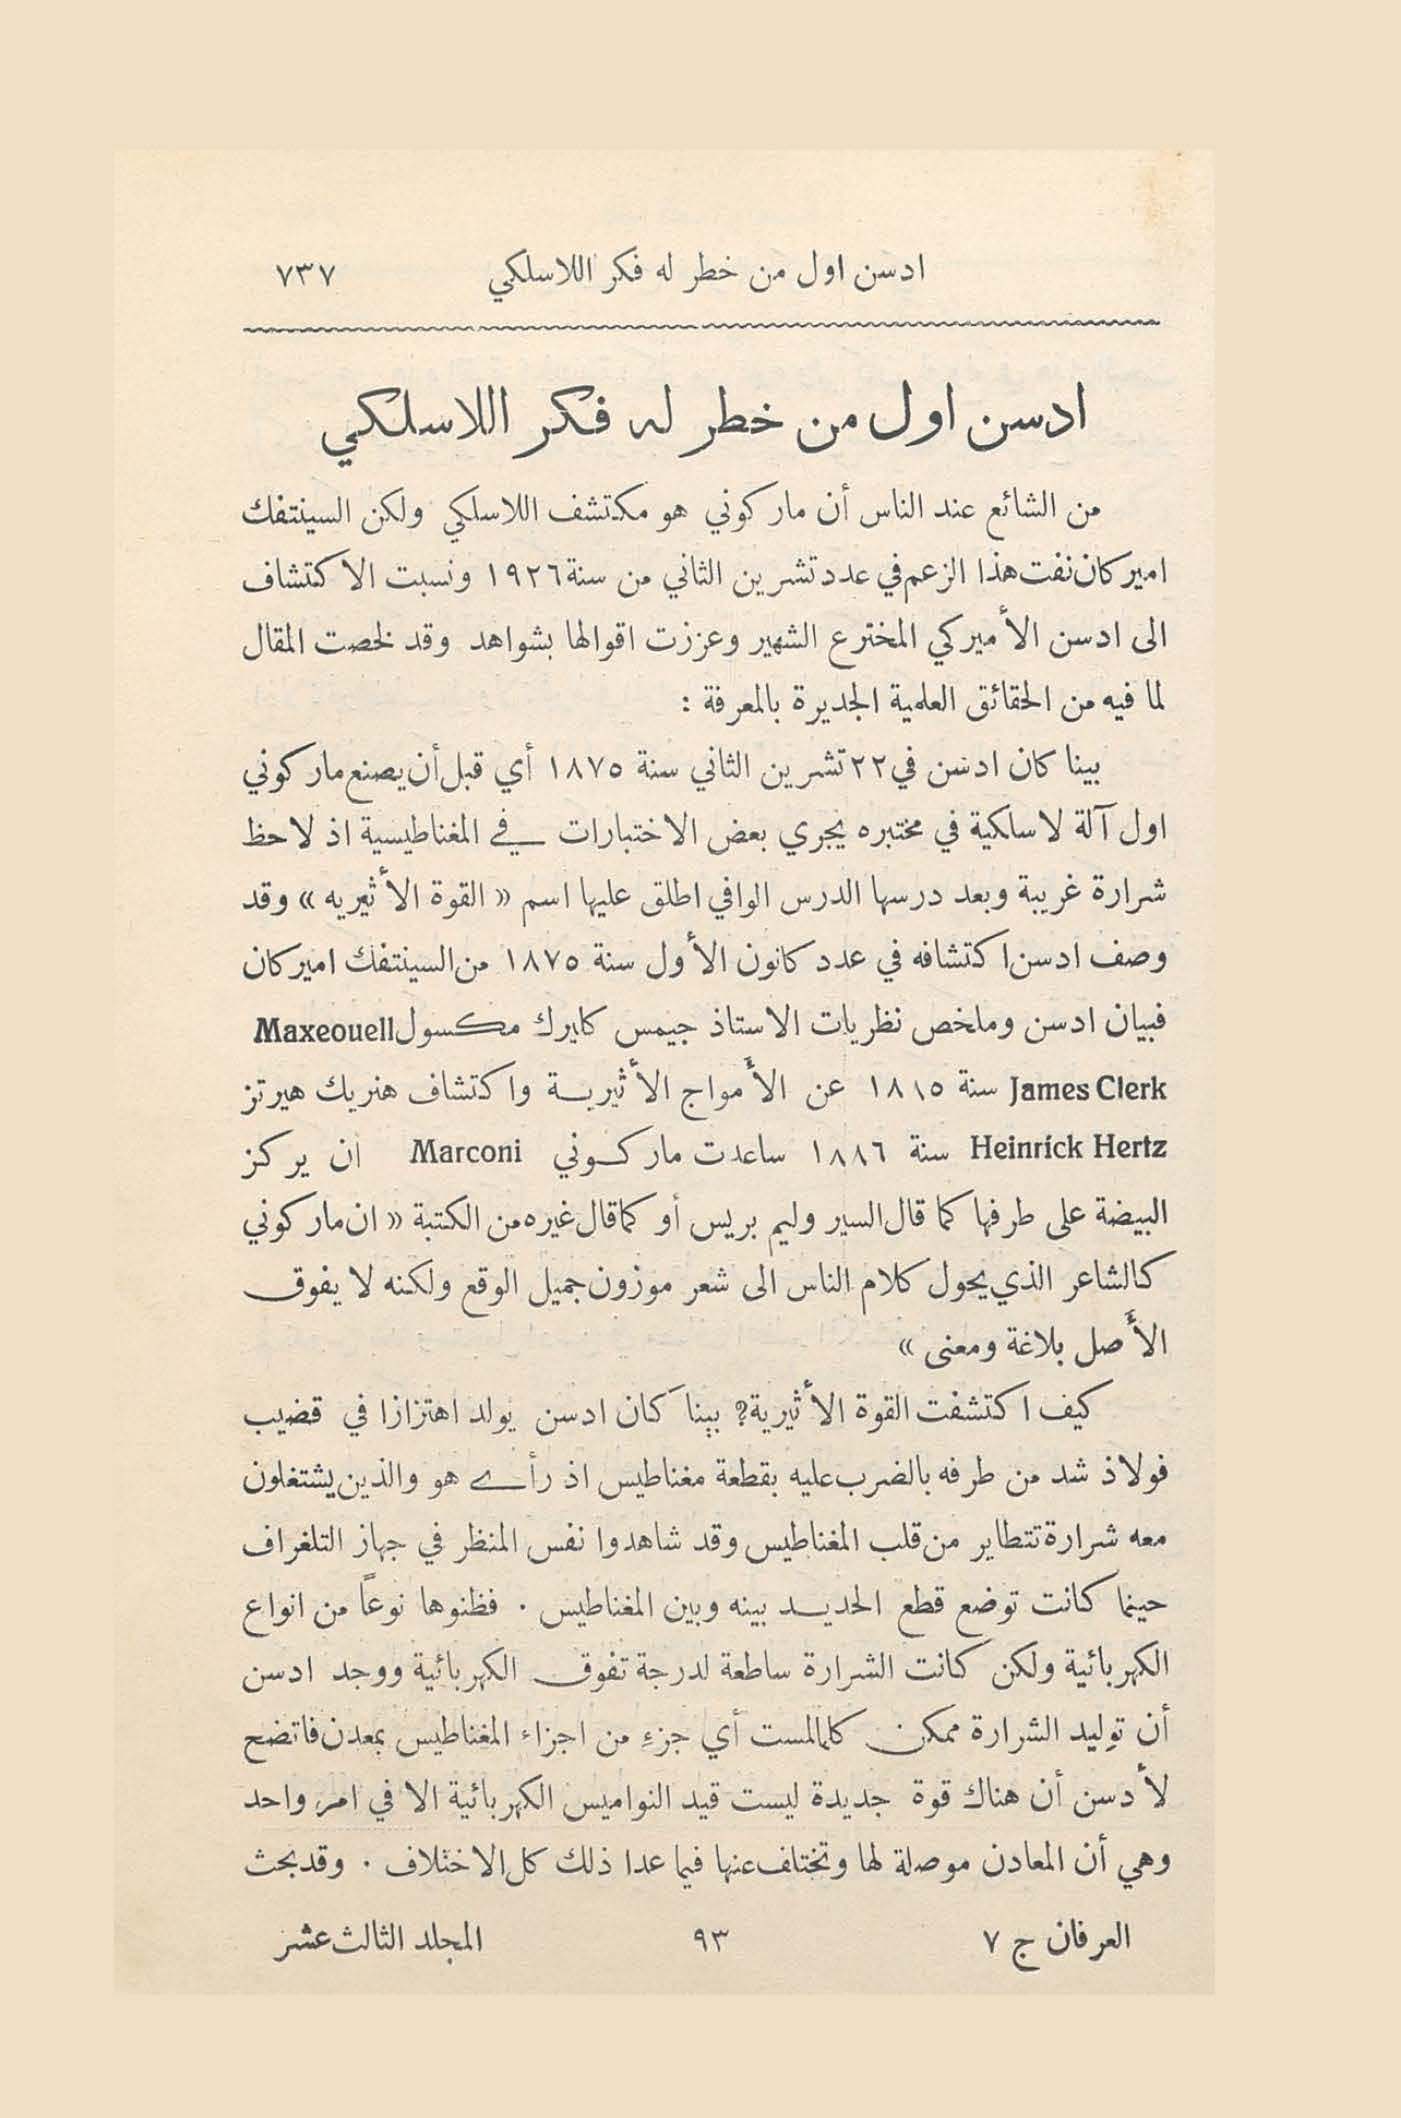 ادسن اول من خطر له فكر اللاسلكي ٧٣٧
ادسن اول من خطر له فكر اللاسلكي
من الشائع عند الناس أن ماركوني هو مكتشف اللاسلكي ولكن السينتفك
اميركان نفت هذا الزعم في عدد تشرين الثاني من سنة ١٩٢٦ ونسبت الاكتشاف
الى ادسن الأميركي المخترع الشهير وعززت اقوالها بشواهد وقد لخصت المقال
لما فيه من الحقائق العلمية الجديرة بالمعرفة :
بينا كان ادسن في ٢٢ تشرين الثاني سنة ١٨٧٥ أي قبل أن يصنع ماركوني
اول آلة لاسلكية في مختبره يجري بعض الاختبارات في المغناطيسية اذ لاحظ
شرارة غريبة وبعد درسها الدرس الوافي اطلق عليها اسم « القوة الأثيريه » وقد
وصف ادسن اكتشافه في عدد كانون الأول سنة ١٨٧٥ من السينتفك اميركان
فبيان ادسن وملخص نظريات الاستاذ جيمس كليرك مكسول Maxeouell
James Clerk سنة ١٨١٥ عن الأمواج الأثيرية واكتشاف هنريك هيرتز
Heinrick Hertz سنة ١٨٨٦ ساعدت ماركوني Marconi ان يركز
البيضة على طرفها كما قال السير وليم بريس أو كما قال غيره من الكتبة « ان ماركوني
كالشاعر الذي يحول كلام الناس الى شعر موزون جميل الوقع ولكنه لا يفوق
الأصل بلاغة ومعنى »
كيف اكتشفت القوة الأثيرية؟ بينا كان ادسن يولد اهتزازا في قضيب
فولاذ شد من طرفه بالضرب عليه بقطعة مغناطيس اذ رأى هو والذين يشتغلون
معه شرارة تتطاير من قلب المغناطيس وقد شاهدوا نفس المنظر في جهاز التلغراف
حينما كانت توضع قطع الحديد بينه وبين المغناطيس . فظنوها نوعاً من انواع
الكهربائية ولكن كانت الشرارة ساطعة لدرجة تفوق الكهربائية ووجد ادسن
أن توليد الشرارة ممكن كلما لمست أي جزء من اجزاء المغناطيس بمعدن فاتضح
لأدسن أن هناك قوة جديدة ليست قيد النواميس الكهربائية الا في امر واحد
وهي أن المعادن موصلة لها وتختلف عنها فيما عدا ذلك كل الاختلاف . وقد بحث
العرفان ج ٧ ٩٣ المجلد الثالث عشر